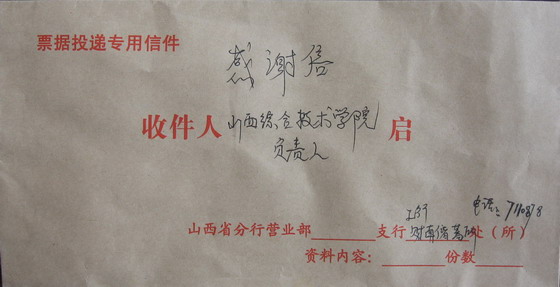 票据投递专用信件
感谢信
收件人 山西综合技术学院 启
负责人
工行 电话:
山西省分行营业部______支行______处(所)
资料内容:______份数______